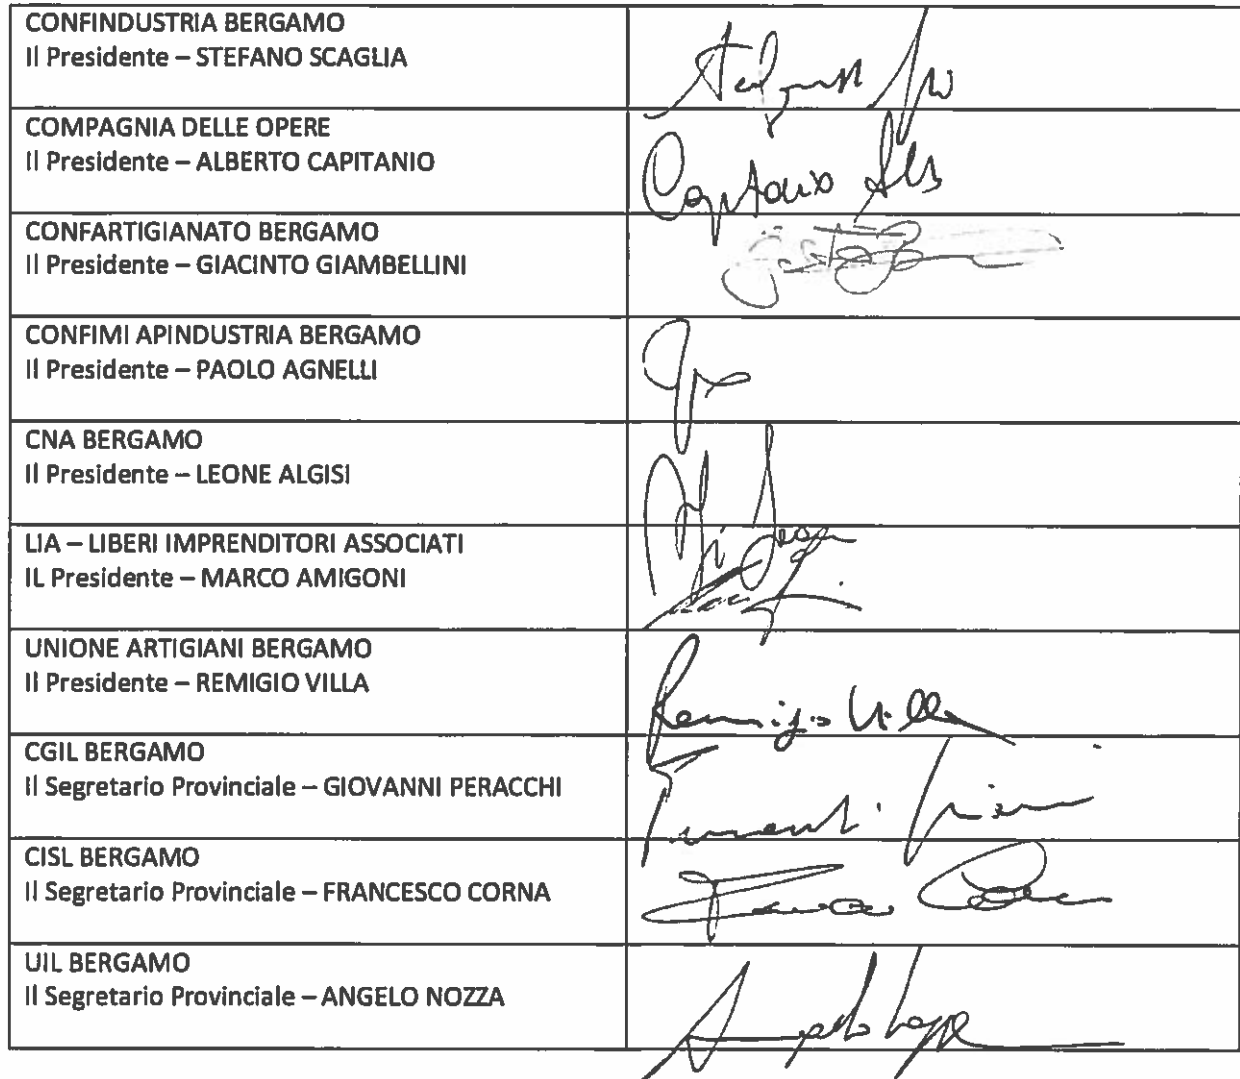 CONFINDUSTRIA BERGAMO
Il Presidente – STEFANO SCAGLIA
COMPAGNIA DELLE OPERE
Il Presidente – ALBERTO CAPITANIO
Capitanio
CONFARTIGIANATO BERGAMO
Il Presidente – GIACINTO GIAMBELLINI
CONFIMI APINDUSTRIA BERGAMO
Il Presidente – PAOLO AGNELLI
CNA BERGAMO
Il Presidente – LEONE ALGISI
LIA – LIBERI IMPRENDITORI ASSOCIATI
IL Presidente – MARCO AMIGONI
UNIONE ARTIGIANI BERGAMO
Il Presidente – REMIGIO VILLA
Remigio Villa
CGIL BERGAMO
Il Segretario Provinciale – GIOVANNI PERACCHI
CISL BERGAMO
Il Segretario Provinciale – FRANCESCO CORNA
UIL BERGAMO
Il Segretario Provinciale – ANGELO NOZZA